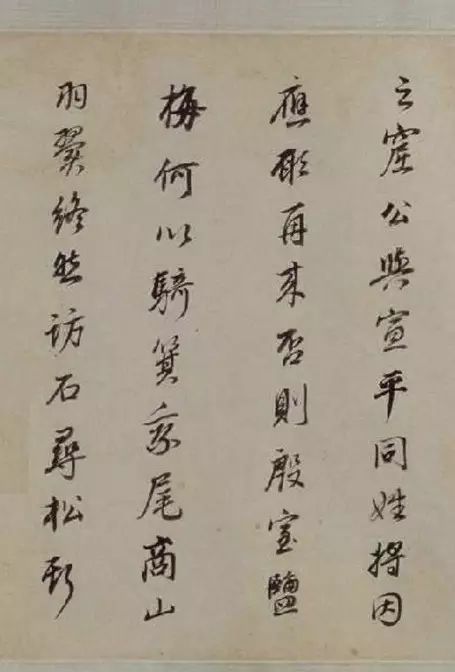 之窟公與宣平同姓將因
應願再來否則殷室鹽
梅何以騎箕乘尾商山
羽翼終然訪石尋松耶